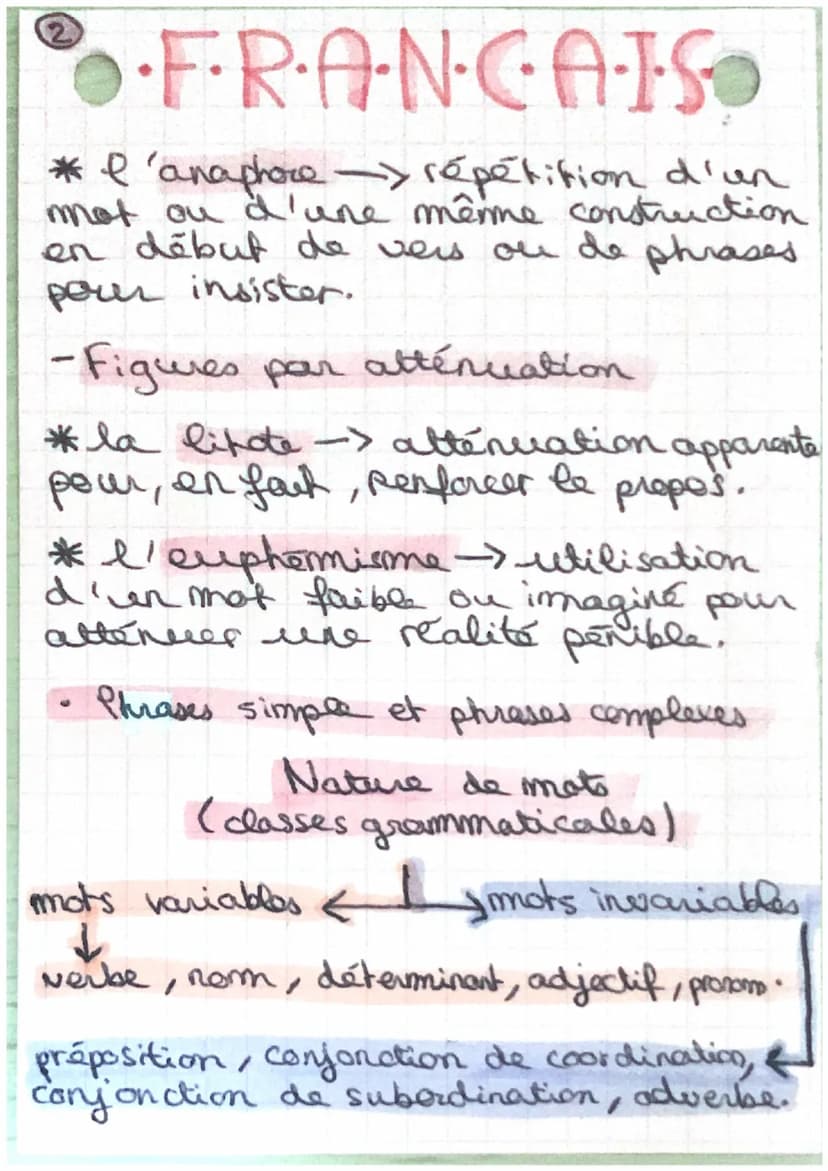 2
·F·R·A·N·C·A·I·S·
* l'anaphore → répétition d'un
mot ou d'une même construction
en début de vers ou de phrases
pour insister.
- Figures par atténuation
* la litote → atténuation apparente
pour, en fait, renforcer le propos.
* l'euphémisme → utilisation
d'un mot faible ou imaginé pour
atténuer une réalité pénible.
• Phrases simple et phrases complexes
Nature de mots
(classes grammaticales)
mots variables ← → mots invariables
↓
verbe, nom, déterminant, adjectif, pronom.
préposition, conjonction de coordination, ←
conjonction de subordination, adverbe.